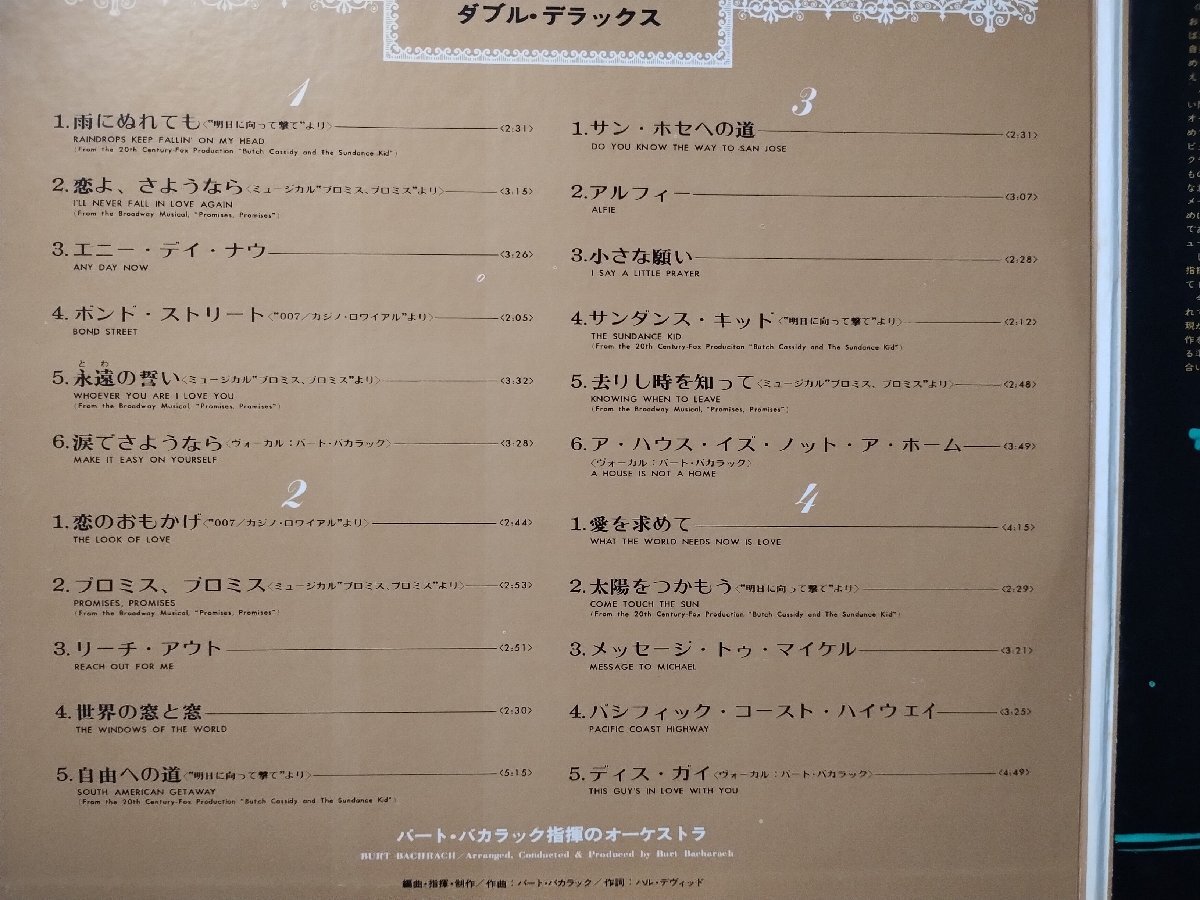 ダブル・デラックス
1
1.雨にぬれても〈"明日に向って撃て"より〉〈2:31〉
RAINDROPS KEEP FALLIN' ON MY HEAD
(From the 20th Century-Fox Production "Butch Cassidy and The Sundance Kid")
2.恋よ、さようなら〈ミュージカル"プロミス、プロミス"より〉〈3:15〉
I'LL NEVER FALL IN LOVE AGAIN
(From the Broadway Musical, "Promises, Promises")
3.エニー・デイ・ナウ〈3:26〉
ANY DAY NOW
4.ボンド・ストリート〈"007/カジノ・ロワイアル"より〉〈2:05〉
BOND STREET
とわ
5.永遠の誓い〈ミュージカル"プロミス、プロミス"より〉〈3:32〉
WHOEVER YOU ARE I LOVE YOU
(From the Broadway Musical, "Promises, Promises")
6.涙でさようなら〈ヴォーカル:バート・バカラック〉〈3:28〉
MAKE IT EASY ON YOURSELF
2
1.恋のおもかげ〈"007/カジノ・ロワイアル"より〉〈2:44〉
THE LOOK OF LOVE
2.プロミス、プロミス〈ミュージカル"プロミス、プロミス"より〉〈2:53〉
PROMISES, PROMISES
(From the Broadway Musical, "Promises, Promises")
3.リーチ・アウト〈2:51〉
REACH OUT FOR ME
4.世界の窓と窓〈2:30〉
THE WINDOWS OF THE WORLD
5.自由への道〈"明日に向って撃て"より〉〈5:15〉
SOUTH AMERICAN GETAWAY
(From the 20th Century-Fox Production "Butch Cassidy and The Sundance Kid")
3
1.サン・ホセへの道〈2:31〉
DO YOU KNOW THE WAY TO SAN JOSE
2.アルフィー〈3:07〉
ALFIE
3.小さな願い〈2:28〉
I SAY A LITTLE PRAYER
4.サンダンス・キッド〈"明日に向って撃て"より〉〈2:12〉
THE SUNDANCE KID
(From the 20th Century-Fox Producitan "Butch Cassidy and The Sundance Kid")
5.去りし時を知って〈ミュージカル"プロミス、プロミス"より〉〈2:48〉
KNOWING WHEN TO LEAVE
(From the Broadway Musical, "Promises, Promises")
6.ア・ハウス・イズ・ノット・ア・ホーム〈3:49〉
〈ヴォーカル:バート・バカラック〉
A HOUSE IS NOT A HOME
4
1.愛を求めて〈4:15〉
WHAT THE WORLD NEEDS NOW IS LOVE
2.太陽をつかもう〈"明日に向って撃て"より〉〈2:29〉
COME TOUCH THE SUN
(From the 20th Century-Fox Production "Butch Cassidy and The Sundance Kid")
3.メッセージ・トゥ・マイケル〈3:21〉
MESSAGE TO MICHAEL
4.パシフィック・コースト・ハイウェイ〈3:25〉
PACIFIC COAST HIGHWAY
5.ディス・ガイ〈ヴォーカル:バート・バカラック〉〈4:49〉
THIS GUY'S IN LOVE WITH YOU
バート・バカラック指揮のオーケストラ
BURT BACHRACH/Arranged, Conducted & Produced by Burt Bacharach
編曲・指揮・制作/作曲:バート・バカラック/作詞:ハル・デヴィッド